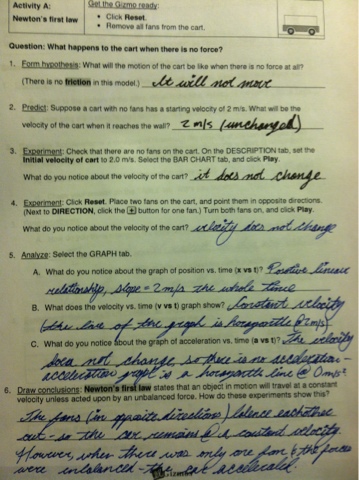 Activity A:
Newton's first law
Get the Gizmo ready:
• Click Reset.
• Remove all fans from the cart.
Question: What happens to the cart when there is no force?
1. Form hypothesis: What will the motion of the cart be like when there is no force at all?
(There is no friction in this model.) It will not move
2. Predict: Suppose a cart with no fans has a starting velocity of 2 m/s. What will be the
velocity of the cart when it reaches the wall? 2 m/s (unchanged)
3. Experiment: Check that there are no fans on the cart. On the DESCRIPTION tab, set the
Initial velocity of cart to 2.0 m/s. Select the BAR CHART tab, and click Play.
What do you notice about the velocity of the cart? it does not change
4. Experiment: Click Reset. Place two fans on the cart, and point them in opposite directions.
(Next to DIRECTION, click the + button for one fan.) Turn both fans on, and click Play.
What do you notice about the velocity of the cart? velocity does not change
5. Analyze: Select the GRAPH tab.
A. What do you notice about the graph of position vs. time (x vs t)? Positive linear
relationship, slope = 2 m/s the whole time
B. What does the velocity vs. time (v vs t) graph show? Constant velocity
(the line of the graph is @ 2 m/s)
C. What do you notice about the graph of acceleration vs. time (a vs t)? The velocity
does not change, so there is no acceleration -
acceleration graph is a line @ 0 m/s²
6. Draw conclusions: Newton's first law states that an object in motion will travel at a constant
velocity unless acted upon by an unbalanced force. How do the experiments show this?
The fans (in opposite directions) each other
out - so the car remains @ a constant velocity.
However, when there was only one fan & the forces
were unbalanced - the car accelerated.
Gizmos